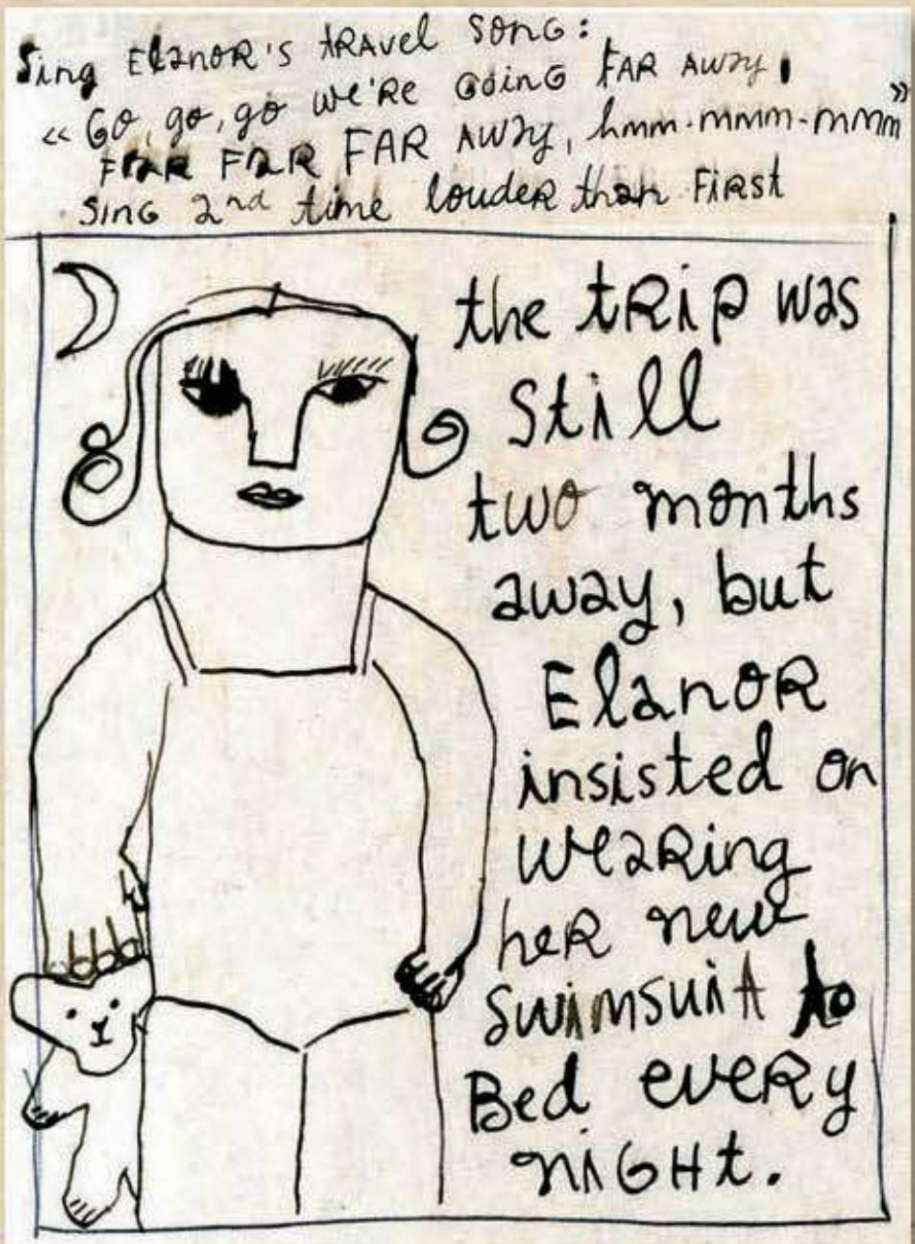 Sing ElanoR's tRAvel SONG:
« GO, go, go we'RE GOING FAR AWAY,
FAR FAR FAR AWAY, hmm-mmm-mmm »
SING 2nd time loudeR than FiRSt
the tRip was
still
two months
away, but
ElanoR
insisted on
weaRing
heR new
swimsuit to
Bed eveRy
niGHt.